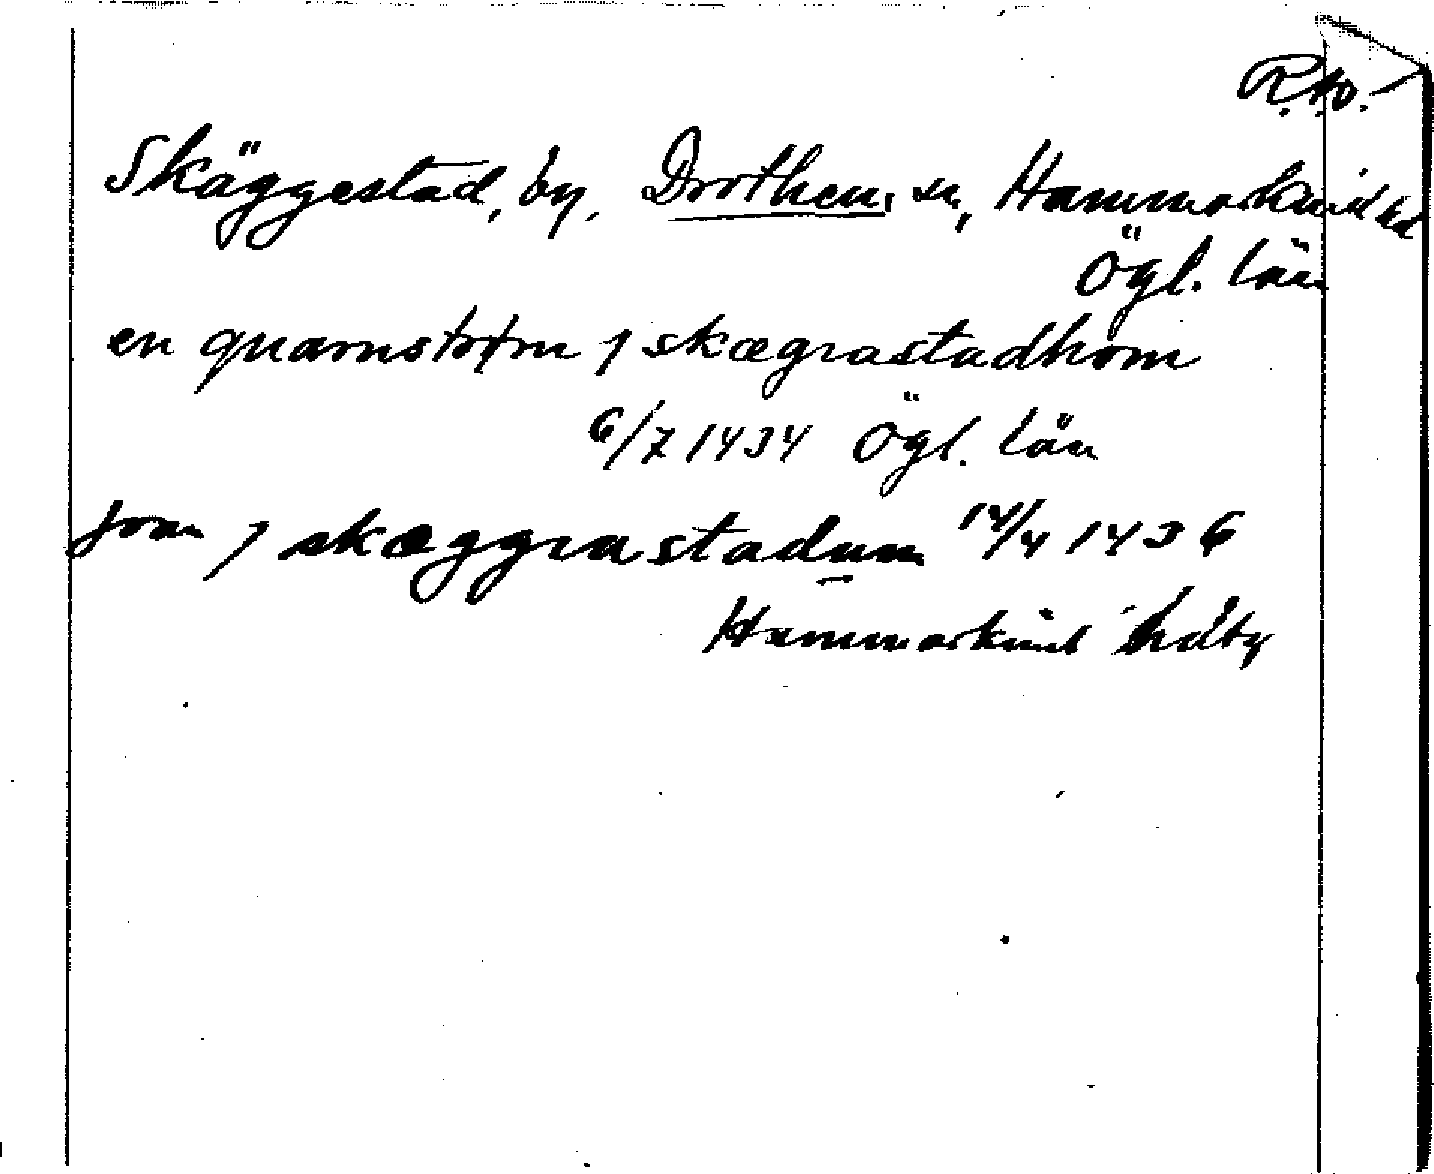 Skäggestad, by, Drothem, sn, Hammarkind hd
Ögl. län
en quarnstrøm j skægrastadhom
6/7 1434 Ögl. län
j skæggrastadum 14/4 1436
Hammarkind